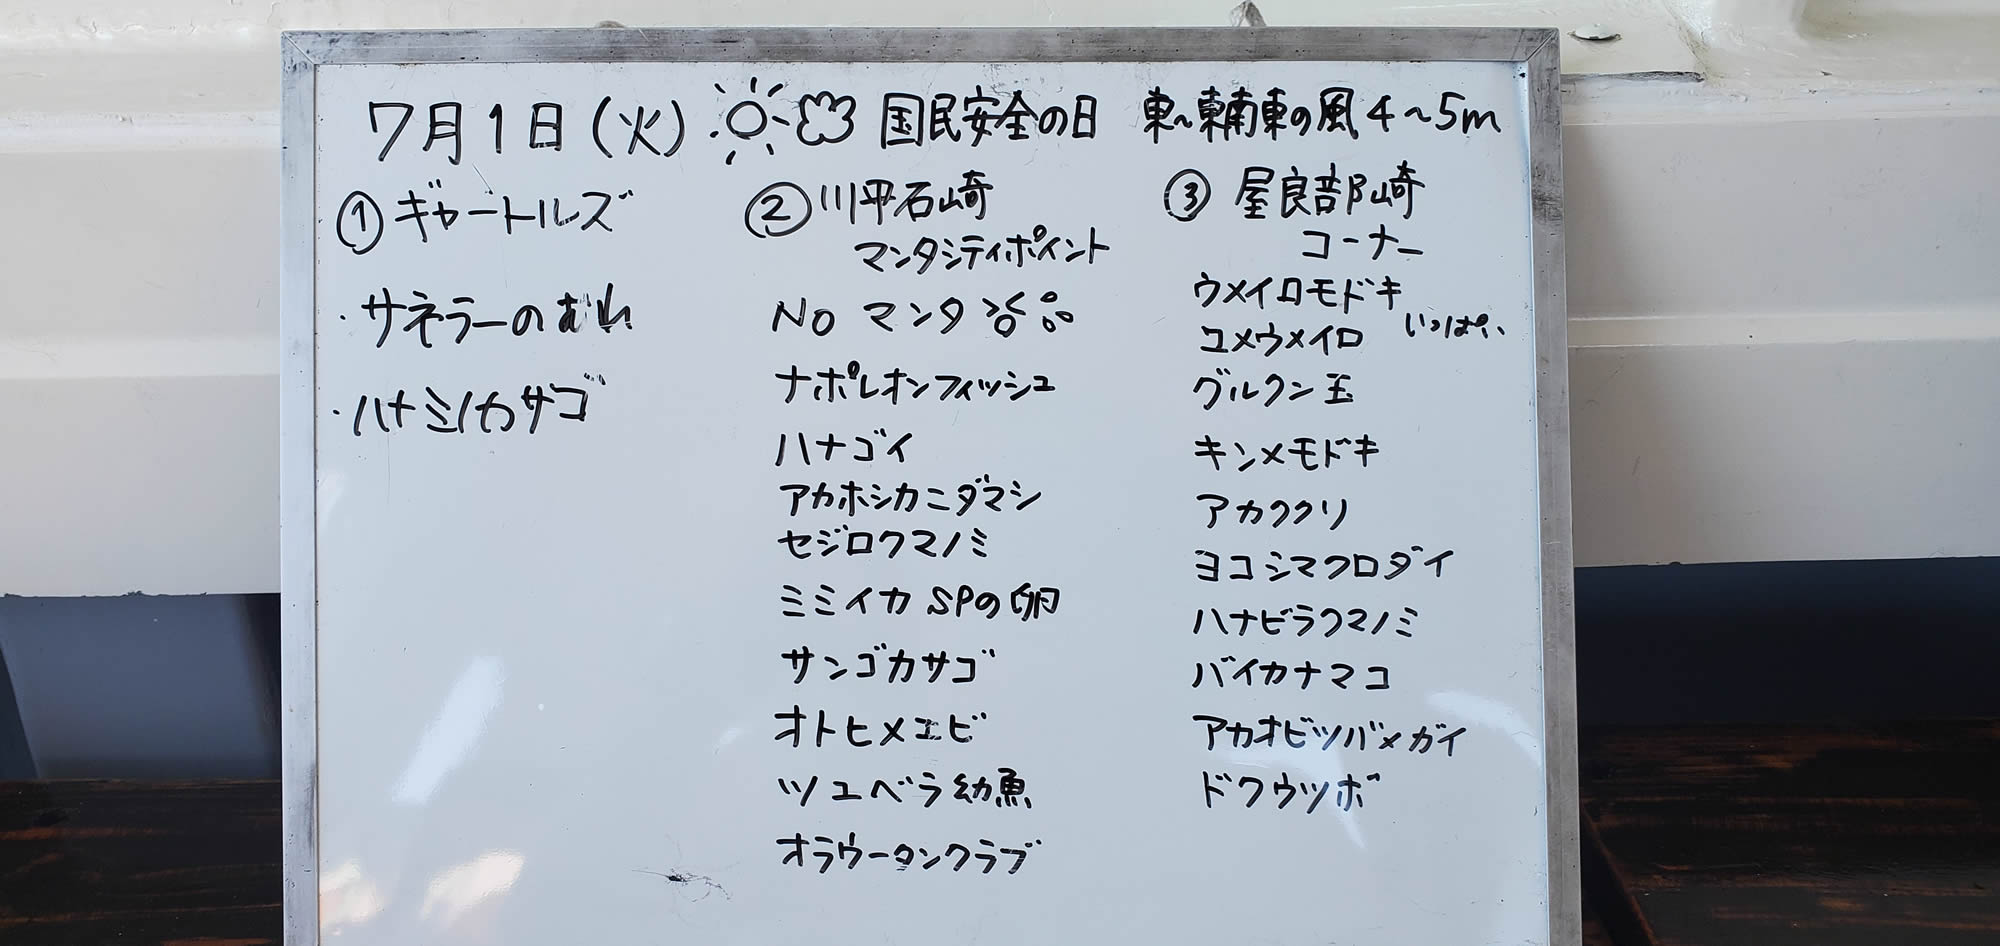 7月1日(火) 国民安全の日 東~東南東の風4~5m
① ギャートルズ
・サネラーのむれ
・ハナミノカサゴ
② 川平石崎
マンタシティポイント
No マンタ
ナポレオンフィッシュ
ハナゴイ
アカホシカニダマシ
セジロクマノミ
ミミイカSPの卵
サンゴカサゴ
オトヒメエビ
ツユベラ幼魚
オラウータンクラブ
③ 屋良部崎
コーナー
ウメイロモドキ
ユメウメイロ
いっぱい
グルクン玉
キンメモドキ
アカククリ
ヨコシマクロダイ
ハナビラクマノミ
バイカナマコ
アカオビツバメガイ
ドクウツボ